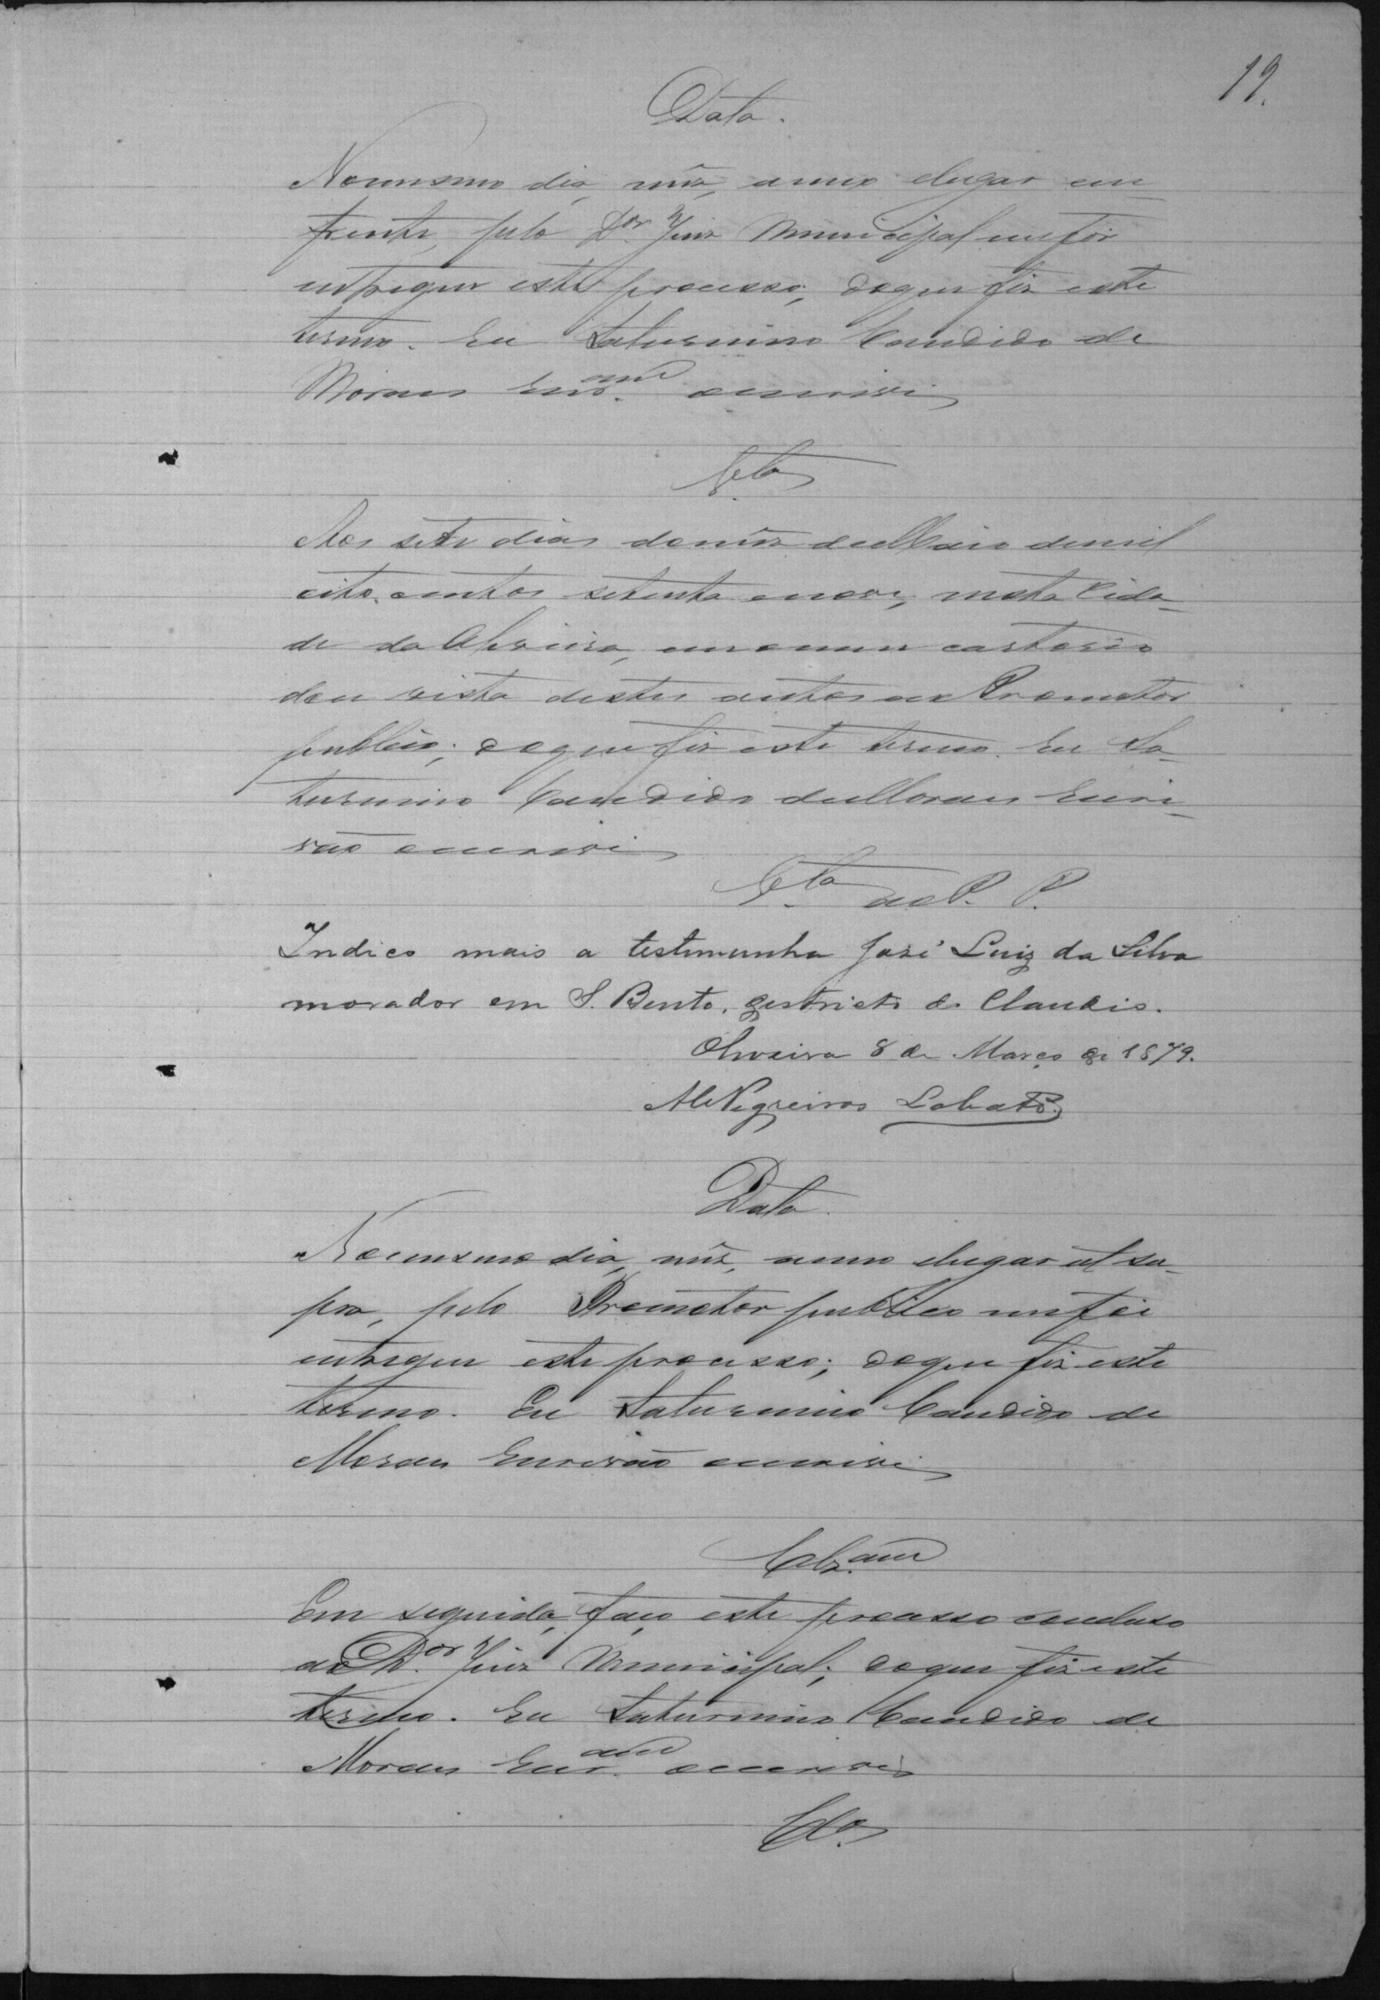 19.
Data.
No mesmo dia, mez, anno elugar em
frente, pelo Dor Juiz Municipal me foi
entregue este processo; doque fiz este
termo. Eu Saturnino Candido de
Moraes Escram escrivi
Vta
Aos sete dias domez de Maio demil
oito centos setenta enove, nesta Cida-
de da Oliveira, em meu cartorio
dou vista destes autos ao Promotor
publico; doque fiz este termo. Eu Sa-
turnino Candido de Moraes Escri-
vão escrivi
Vta ao P. P.
Indico mais a testemunha José Luiz da Silva
morador em S. Bento, destricto do Claudio.
Oliveira 8 de Março de 1879.
Negreiros Lobato
Data.
No mesmo dia, mez, anno elugar ut su-
pra, pelo Promotor publico me foi
entregue este processo; doque fiz este
termo. Eu Saturnino Candido de
Moraes Escrivão escrivi
Clzam
Em seguida, faço este processo concluso
ao Dor Juiz Municipal; doque fiz este
termo. Eu Saturnino Candido de
Moraes Escram escrivi
Clos